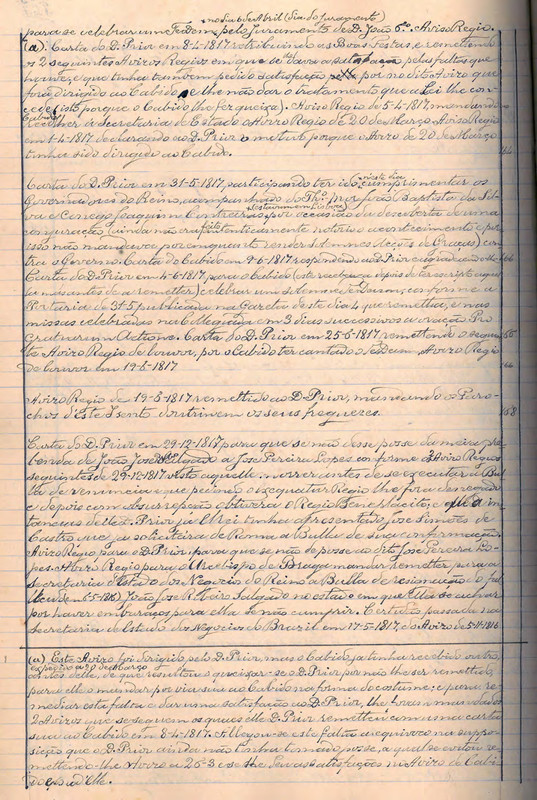 no dia 6 de Abril (dia do juramento)
para se celebrar um Te Deum pelo Juramento de D. João 6º. Aviso Regio.
(a). Carta do D. Prior em 8-4-1817 solicitando as Boas Festas, e remettendo
os 2 seguintes Avisos Regios em que se dava a satisfação, pelas faltas que
houve, e que tinha tambem pedido satisfação por no dito Aviso que
fora dirigido ao Cabido se lhe não dar o tratamento que a Lei lhe con-
cede (isto porque o Cabido lhe fez queixa). Aviso Regio de 5-4-1817, mandando
Cabido
recolher á Secretaria de Estado o Aviso Regio de 20 de Março. Aviso Regio
em 1-4-1817 declarando ao D. Prior o motivo porque o Aviso de 20 de Março
tinha sido dirigido ao Cabido.
Carta do D. Prior em 31-5-1817, participando ter ido neste dia cumprimentar os
Governadores do Reino, acompanhado do Thes. Mor João Baptista da Sil-
va e Conego Joaquim (estavam em Lisboa) por occasião da descoberta de uma
conjuração (ainda não authenticamente notorio o acontecimento e por
isso não mandava por emquanto render solemnes Acções de Graças) con-
tra o Governo. Carta do Cabido em 9-6-1817 respondendo ao Prior 166
Carta do D. Prior em 4-6-1817, para o Cabido (este recebeu-a depois de ter escripto aquel-
la mas antes de a remetter) celebrar um solemne Te Deum, conforme a
Portaria de 31-5 publicada na Gazeta deste dia 4 que remettia, e nas
missas celebradas na Collegiada em 3 dias successivos a oração Pro
Gratiarum Actione. Carta do D. Prior em 25-6-1817, remettendo o seguin- 165
te Aviso Regio de louvor, por o Cabido ter cantado o Te Deum, Aviso Regio
de louvor em 19-6-1817 166
Aviso Regio de 19-6-1817 remettido ao D. Prior, mandando os Paro-
chos d'Este Isento doutrinem os seus freguezes. 158
Carta do D. Prior em 29-12-1817 para que se não desse posse da meia pre-
benda de João José Salgado a José Pereira Lopes conforme 2 Avisos Regios
seguintes de 29-12-1817 visto aquelle morrer antes de se executar a Bul-
la de renuncia e que pedindo o Exequatur Regio lhe fora denegado
e depois com obsurrepção obtivera o Regio Beneplacito; e que a in-
stancias delle D. Prior já El-Rei tinha apresentado José Simões de
Castro que já solicitara de Roma a Bulla de sua confirmação.
Aviso Regio, para o D. Prior, para que se não dê posse ao dito José Pereira Lo-
pes. Aviso Regio para o Arcebispo de Braga mandar remetter para a
Secretaria d'Estado dos Negocios do Reino a Bulla de resignação do fal-
lecido João José Ribeiro Salgado no estado em que ella se achar
por haver embaraços para ella se não cumprir. Certidão passada na
Secretaria de Estado dos Negocios do Brazil em 17-5-1817, do Aviso de
(a) Este Aviso foi dirigido pelo D. Prior, mas o Cabido já tinha recebido outro,
expedido a 20 de Março
antes delle, de que resultou queixar-se o D. Prior por não lhe ser remettido
para elle o mandar por via sua ao Cabido na forma do costume; e para re-
mediar esta falta e dar uma satisfação ao D. Prior, lhe foram mandados os
2 Avisos que se seguem os quaes elle D. Prior remetteu com uma carta
sua ao Cabido em 8-4-1817. Alegou-se esta falta a equivoco na suppo-
sição que o D. Prior ainda não tinha tomado posse, a qual se evitou re-
mettendo-lhe o Aviso a 25-3 e se lhe deu as satisfações no Aviso do Cabi-
do e no d'elle.